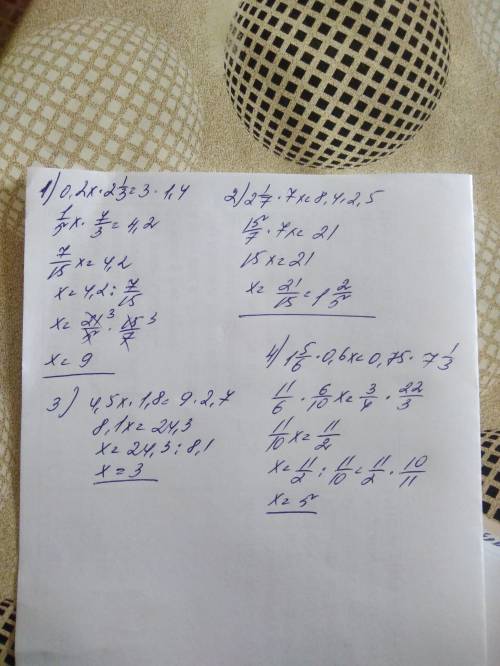 1) 0,2x · 2 1/3 = 3 · 1,4
1/5 x · 7/3 = 4,2
7/15 x = 4,2
x = 4,2 : 7/15
x = 21/5 · 15/7 3 3
x = 9
2) 2 1/7 · 7x = 8,4 · 2,5
15/7 · 7x = 21
15x = 21
x = 21/15 = 1 2/5
3) 4,5x · 1,8 = 9 · 2,7
8,1x = 24,3
x = 24,3 : 8,1
x = 3
4) 1 5/6 · 0,6x = 0,75 · 7 1/3
11/6 · 6/10 x = 3/4 · 22/3
11/10 x = 11/2
x = 11/2 : 11/10 = 11/2 · 10/11
x = 5